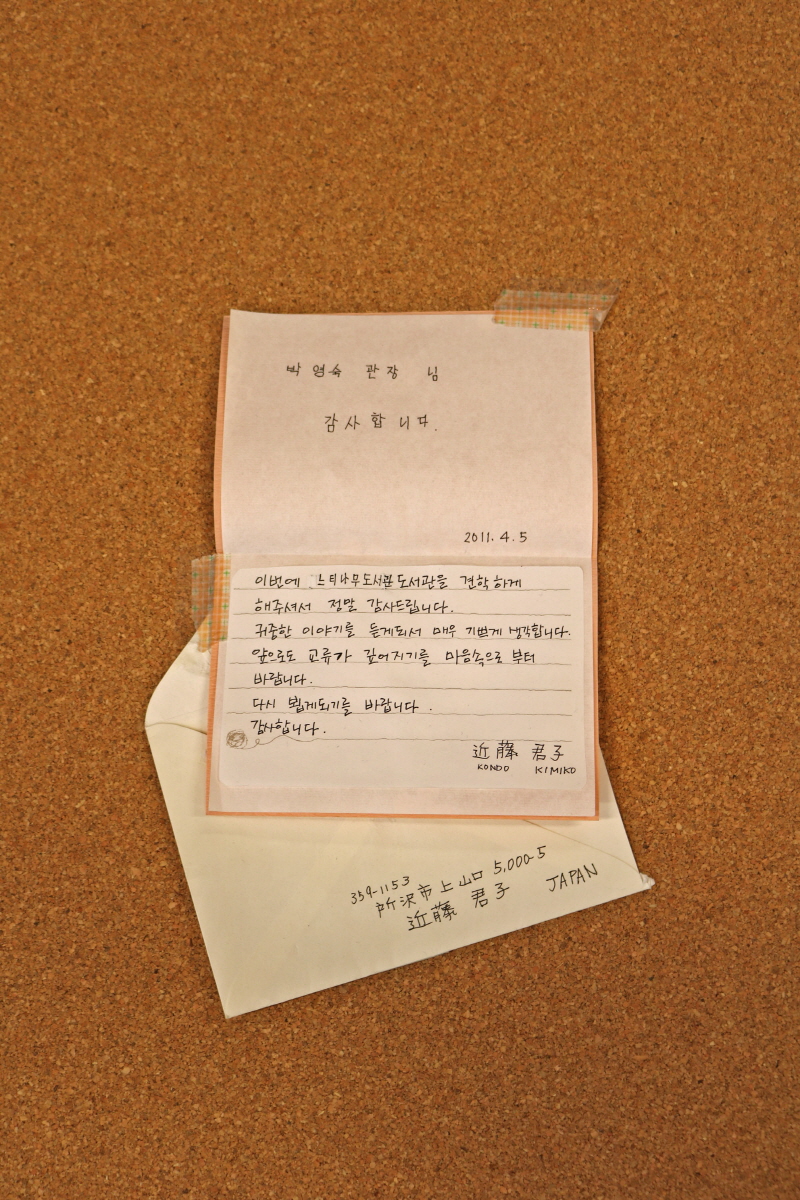 박영숙 관장 님
감사합니다.
2011. 4. 5
이번에 느티나무도서관 도서관을 견학하게
해주셔서 정말 감사드립니다.
귀중한 이야기를 듣게되서 매우 기쁘게 생각합니다.
앞으로도 교류가 깊어지기를 마음속으로 부터
바랍니다.
다시 뵙게되기를 바랍니다.
감사합니다.
近藤 君子
KONDO KIMIKO
359-1153
所沢市上山口 5,000-5
近藤 君子 JAPAN